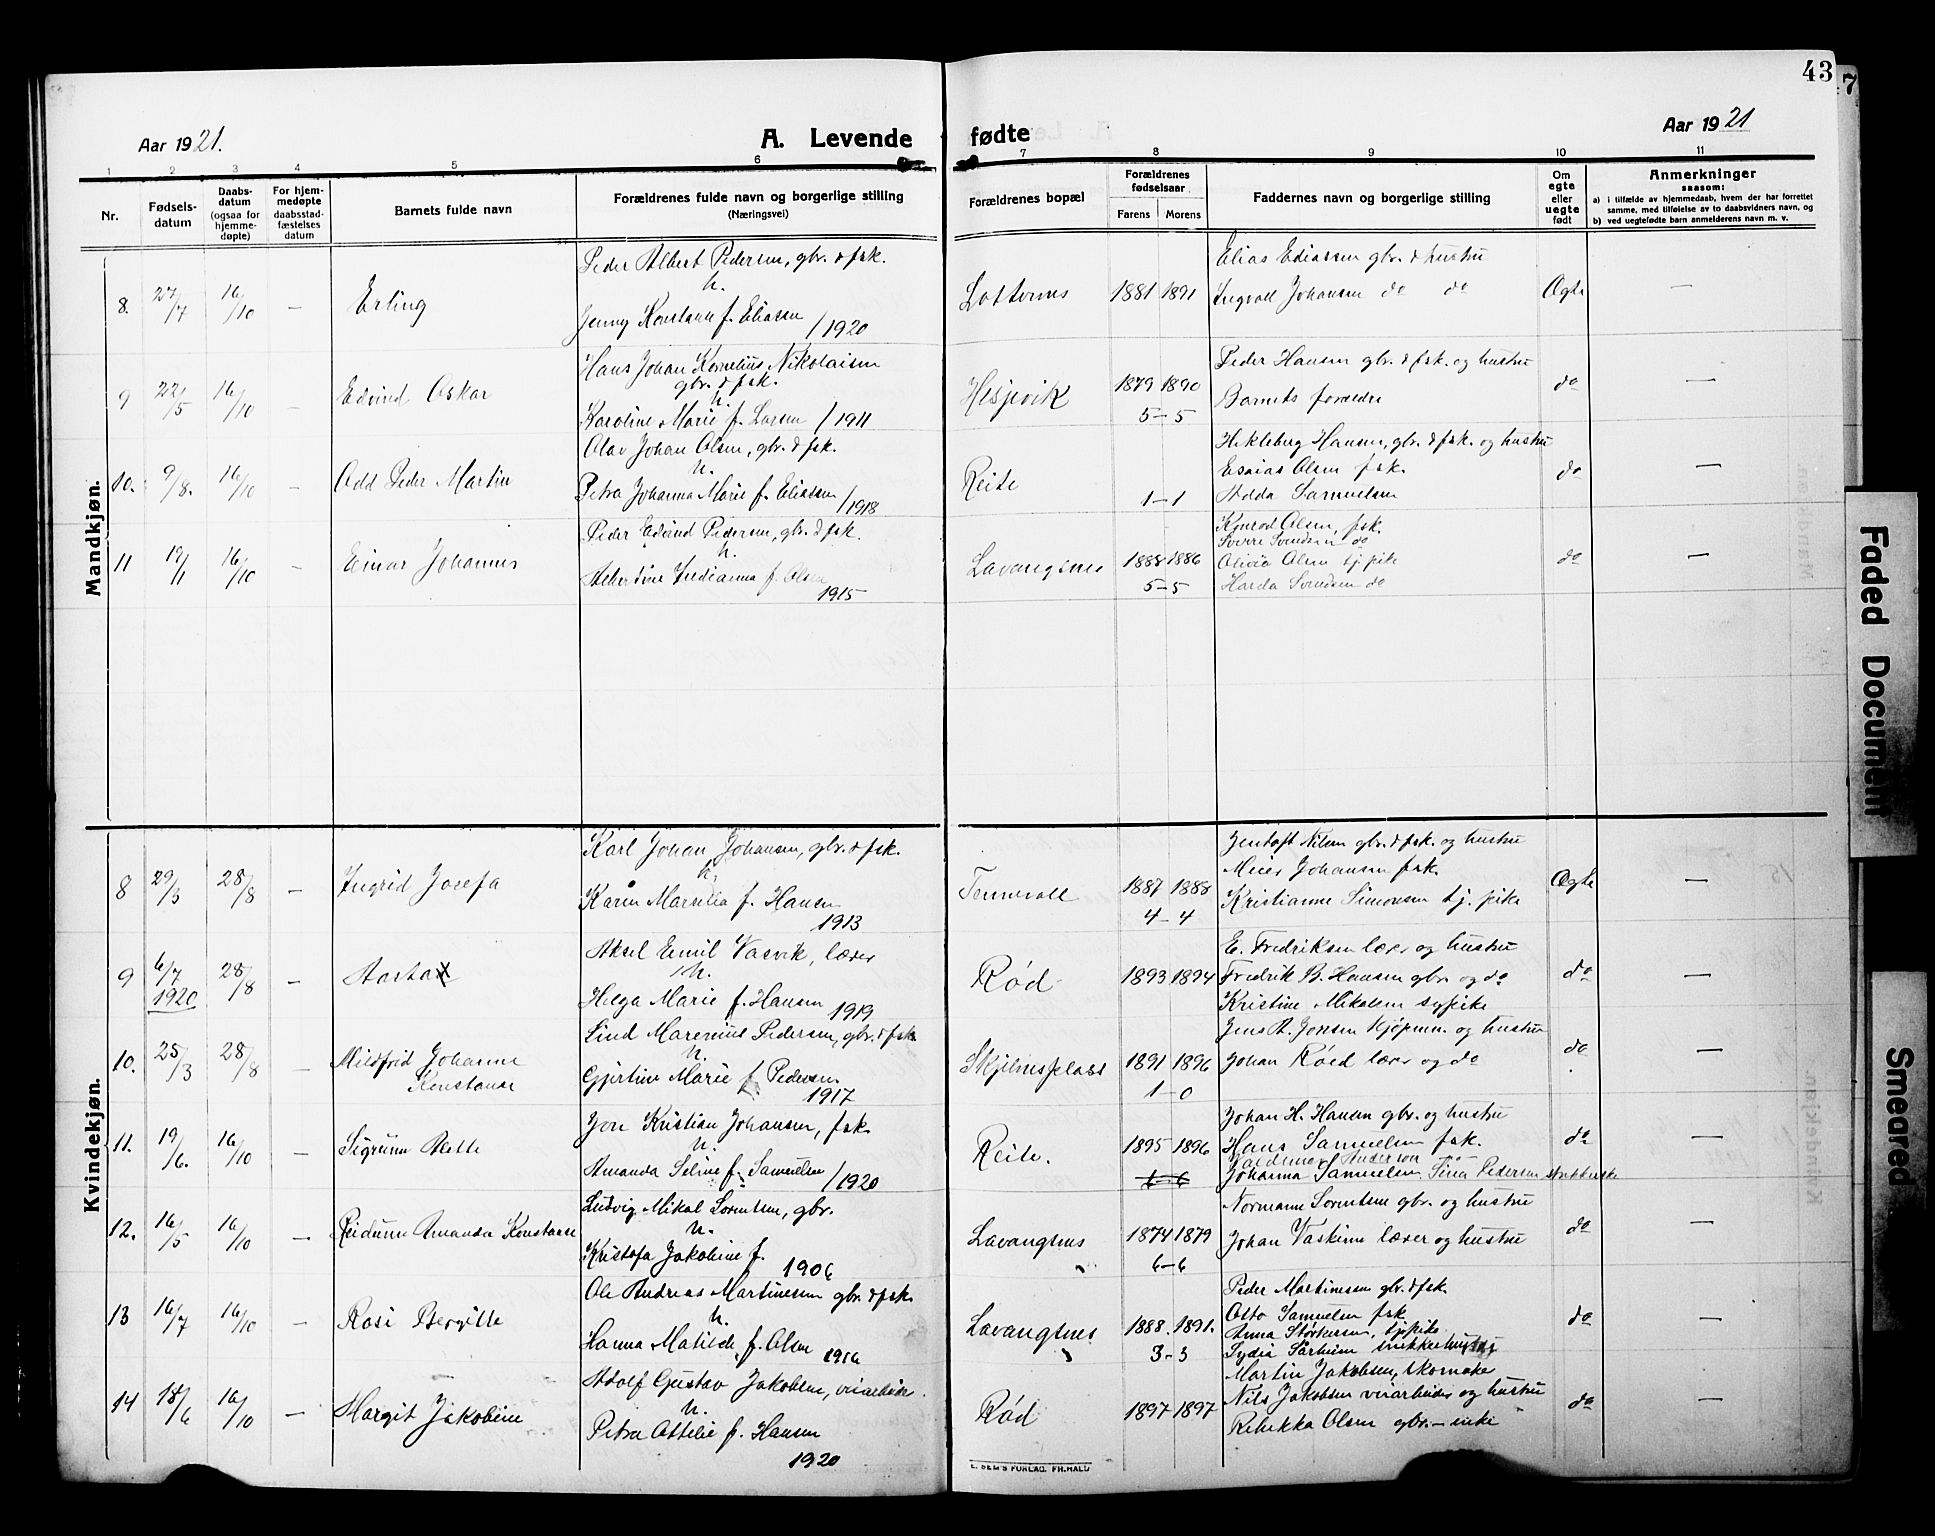 43
7
Aar 1921.
A. Levende
fødte
Aar 1921
1 2 3 4 5 6
7 8 9 10 11
Nr.
Fødsels-
datum
Daabs-
datum
(ogsaa for
hjemme-
døpte)
For hjem-
medøpte
daabsstad-
fæstelses
datum
Barnets fulde navn
Forældrenes fulde navn og borgerlige stilling
(Næringsvei)
Forældrenes bopæl
Forældrenes
fødselsaar
Farens
Morens
Faddernes navn og borgerlige stilling
Om
egte
eller
uegte
født
Anmerkninger
saasom:
a) i tilfælde av hjemmedaab, hvem der har forrettet
samme, med tilføielse av to daabsvidners navn, og
b) ved uegtefødte barn anmelderens navn m. v.
Mandkjøn.
8. 27/7 16/10 — Erling
Peder Albert Pedersen, gbr. & fsk.
h.
Jenny Konstanse f. Eliassen /1920
1881 1891
Elias Eliassen gbr. & hustru
Ingvall Johansen do do
Ægte —
9 22/5 16/10 — Edvind Oskar
Hans Johan Kornelius Nikolaisen
gbr. & fsk.
h.
Karoline Marie f. Larsen /1911
Hesjevik
1879 1890
5-5
Peder Hansen gbr. & fsk. og hustru
Barnets forældre
do —
10. 9/8. 16/10 — Odd Peder Martin
Olav Johan Olsen, gbr. & fsk.
h.
Petra Johanna Marie f. Eliassen /1918
Reite
1-1
Hansen, gbr. & fsk. og hustru
Esaias Olsen fsk.
Hilda Samuelsen
do —
11 19/1 16/10 — Einar Johannes
Peder Edvind Pedersen, gbr. & fsk.
h.
Albertine Indianna f. Olsen
1915
Lavangsnes
1888 1886
5-5
Konrad Olsen, fsk.
Sverre Svendsen do
Olivia Olsen tj. pike
Harda Svendsen do
do —
Kvindekjøn.
8 29/3 28/8 — Ingrid Josefa
Karl Johan Johansen, gbr. & fsk.
h.
Karen Marselia f. Hansen
1913
Tennevoll
1887 1888
4-4
Jentoft Nilsen gbr. & fsk. og hustru
Meier Johansen fsk.
Kristianne Simonsen tj. pike
Ægte —
9 6/7 1920 28/8 — Aasta
Aksel Emil Vasvik, lærer
h.
Helga Marie f. Hansen 1919
Rød
1893 1894
E. Fredriksen lærer og hustru
Fredrik B. Hansen gbr og do
Kristine Mikalsen sypike
do —
10. 25/3 28/8 — Mildfrid Johanne
Konstanse
Lind Marenius Pedersen, gbr. & fsk
h.
Gjertine Marie f. Pedersen
1917
Skjelnesplass
1891 1896
1-0
Jens A. Jonsen kjøpm. og hustru
Johan Røed lærer og do
do —
11. 19/6. 16/10 — Sigrunn Mette
Jon Kristian Johansen, fsk
h.
Amanda Seline f. Samuelsen /1920
Reite.
1895 1896
6-6
Johan H. Hansen gbr. og hustru
Hans Samuelsen fsk.
Valdemar Anderson
Johanna Samuelsen, Sina Pedersen
do —
12. 16/5 16/10 — Reidunn Amanda Konstanse
Ludvig Mikal Sorentsen, gbr.
h.
Kristofa Jakobine f.
1906
Lavangsnes
1874 1879
6-6
Normann Sorentsen gbr. og hustru
Johan Vaskinn lærer og hustru
do —
13 16/7 16/10 — Rosi Bergitte
Ole Andreas Martinesen gbr & fsk
h.
Hanna Matilde f. Olsen 1916
Lavangsnes
1888. 1891.
3-3
Peder Martinessen gbr. & fsk.
Otto Samuelsen fsk.
Anna Størkersen, tj pike
Lydia Sørheim snekkerhustru
do —
14 18/6 16/10 — Margit Jakobine
Adolf Gustav Jakobsen, veiarbeider.
h.
Petra Attelie f. Hansen
1920
Rød
1897 1897
Martin Jakobsen, skomaker
Nils Jakobsen veiarbeider og hustru
Rebekka Olsen gbr.-enke
do —
E. SEM'S FORLAG. FR.HALD
Faded Document
Smeared